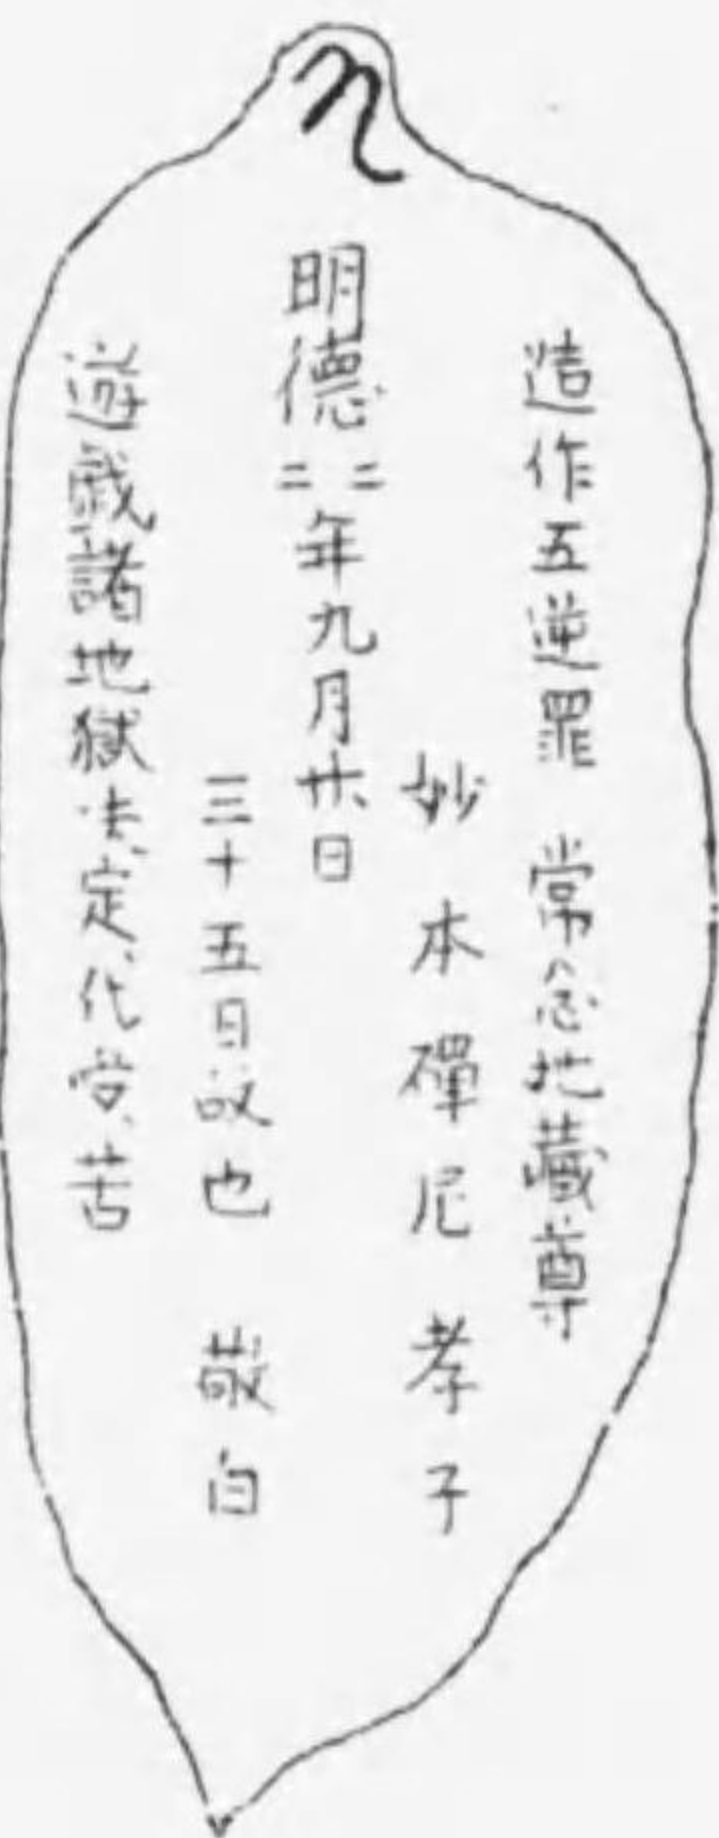 造作五逆罪　常念地蔵尊
妙本禅尼孝子
明徳二二年九月廿日
三十五日故也　敬白
遊戯諸地獄决定代受苦